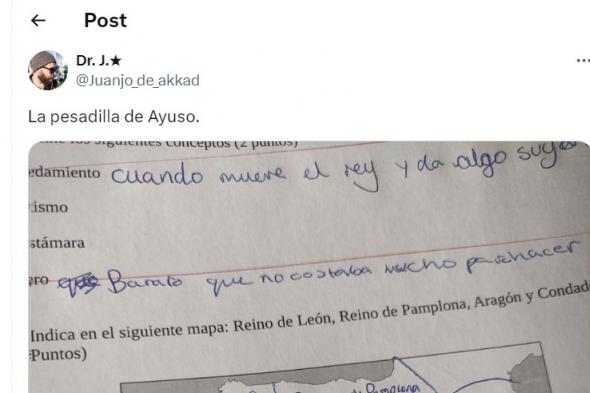 Post
Dr. J.★
@Juanjo_de_akkad
La pesadilla de Ayuso.
los siguientes conceptos (2 puntos)
edamiento cuando muere el rey y da algo suyo
ismo
stámara
ro Barato que no costaba mucho para hacer
Indica en el siguiente mapa: Reino de León, Reino de Pamplona, Aragón y Condad
Puntos)
Pamplona